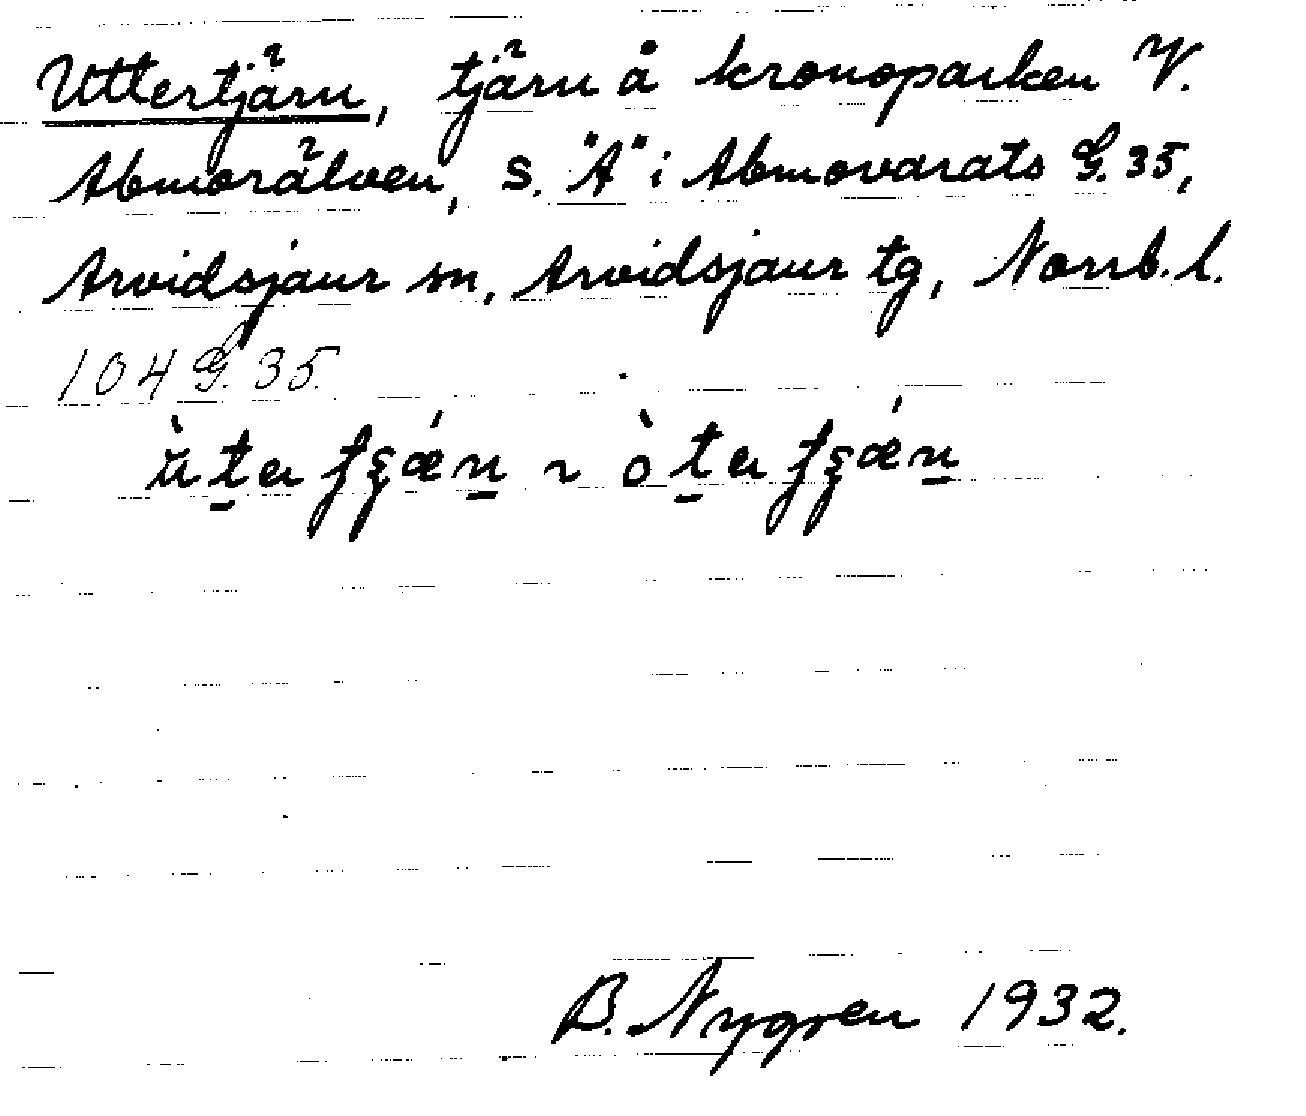 Uttertjärn, tjärn å kronoparken V.
Abmorälven, S. "A" i Abmovarats G. 35,
Arvidsjaur sn, Arvidsjaur tg, Norrb. l.
104 G. 35.
B. Nygren 1932.